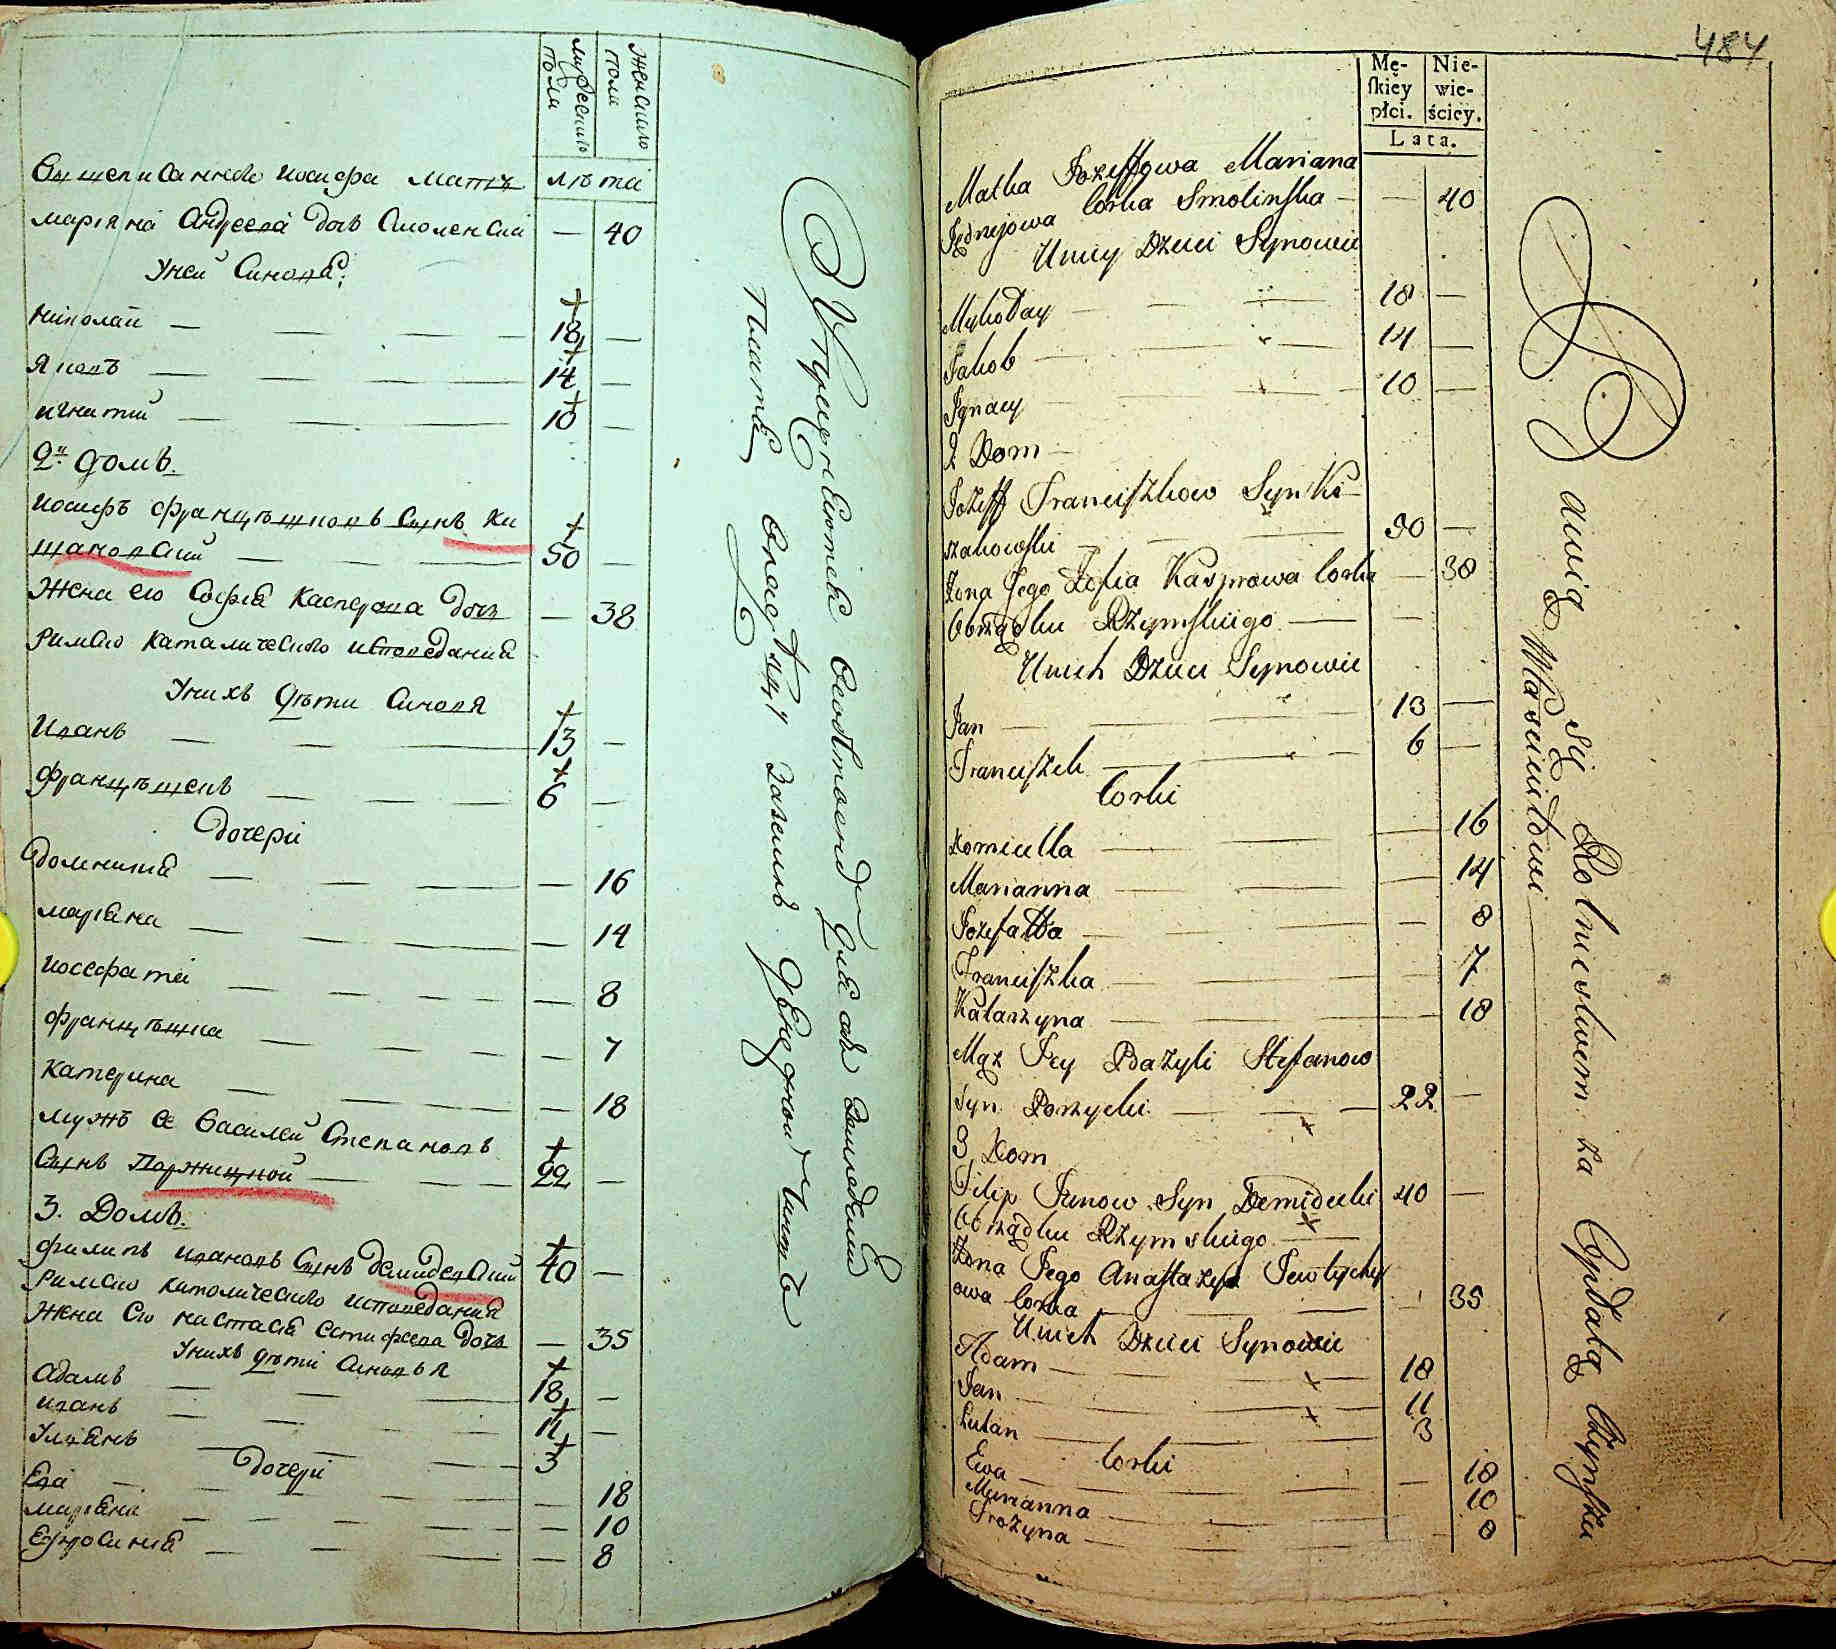 мужескаго пола
женскаго пола
Вышеписанного иосифа мать
лѣта
маріяна Андреева дочь Смоленска — 40
У ней Синовя:
николай — — — 18 —
Яковъ — — — 14 —
игнатий — — — 10 —
2й домъ.
иосифъ францѣшковъ Сынъ Ки
шановский — — — 50 —
Жена его Софія Касперова дочь — 38
римско католическаго исповедания
У нихъ дѣти Синовя
Иванъ — — — 13 —
францѣшекъ — — — 6 —
дочери
доминика — — — 16
маріяна — — — 14
иосефата — — — 8
францѣшка — — — 7
Катерина — — — 18
мужъ ее Василей Степановъ
Сынъ Поржицкой — — 22 —
3. Домъ.
филипъ ивановъ Сынъ демидецкий 40 —
римско католическаго исповедания
Жена его настасія — дочь — 35
У нихъ дѣти Синовья
Адамъ — — — 18 —
иванъ — — — 11 —
Улянъ — — — 3
дочери
Ева — — — 18
маріяна — — — 10
Ефросинія — — — 8
484
Mę-
ſkiey
płci.
Nie-
wie-
ściey.
Lata.
Matka Jozeffowa Marianna
Jędrzejowa Corka Smolinſka — — 40
U niey Dzieci Synowie
Mykołay — — — 18 —
Jakob — — — 14 —
Jgnacy — — — 10 —
2 Dom —
Jozeff Franciſzkow Syn Ki-
szakowſki — — — 50 —
Żona Jego Zofia Kasprowa Corka — 38
Obrządku Rzymſkiego — — —
U nich Dzieci Synowie
Jan — — — 13 —
Franciſzek — — — 6 —
Corki
Domicella — — — 16
Marianna — — — 14
Jozefatta — — — 8
Franciſzka — — — 7
Katarzyna — — — 18
Mąż Jey Bazyli Stefanow
Syn Porzycki — — — 22 —
3 Dom
Filip Janow Syn Demidecki 40 —
Obrządku Rzymskiego — —
Żona Jego Anaſtazya Jewtychy
owa Corka — — — 35
U nich Dzieci Synowie
Adam — — — 18
Jan — — — 11
Lukan — — — 3
Corki
Ewa — — — 18
Marianna — — — 10
Frozyna — — — 8
Bawią się Rolnictwem za Opłatą Czynſzu
Włascicielowi